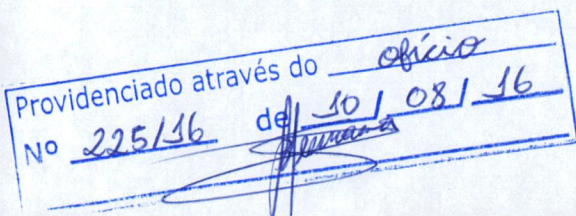 Providenciado através do ofício
Nº 225/16 de 10 / 08 / 16